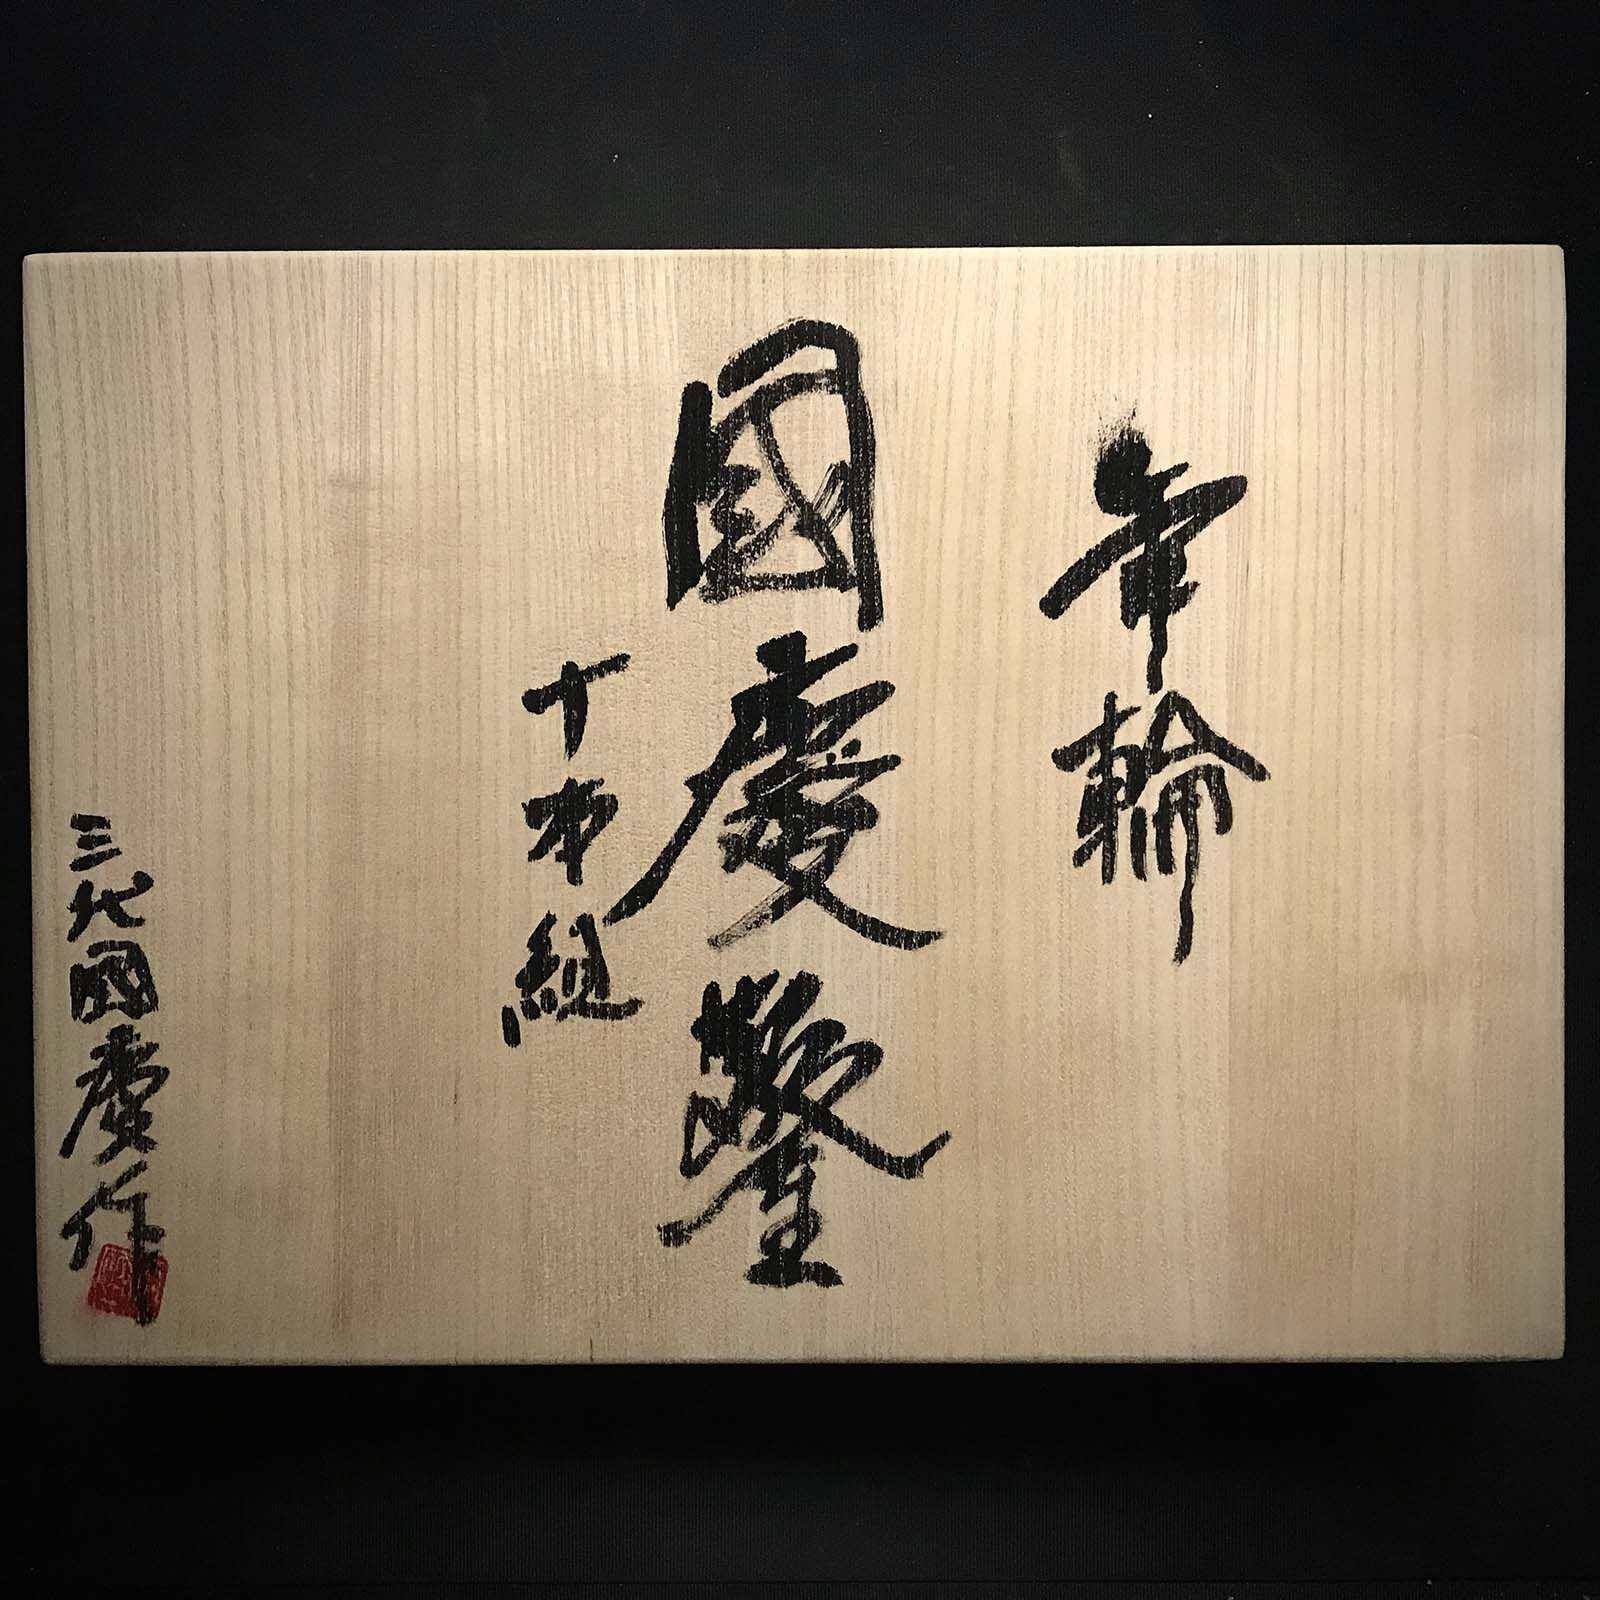 年輪
國慶鑿
十本組
三代國慶作